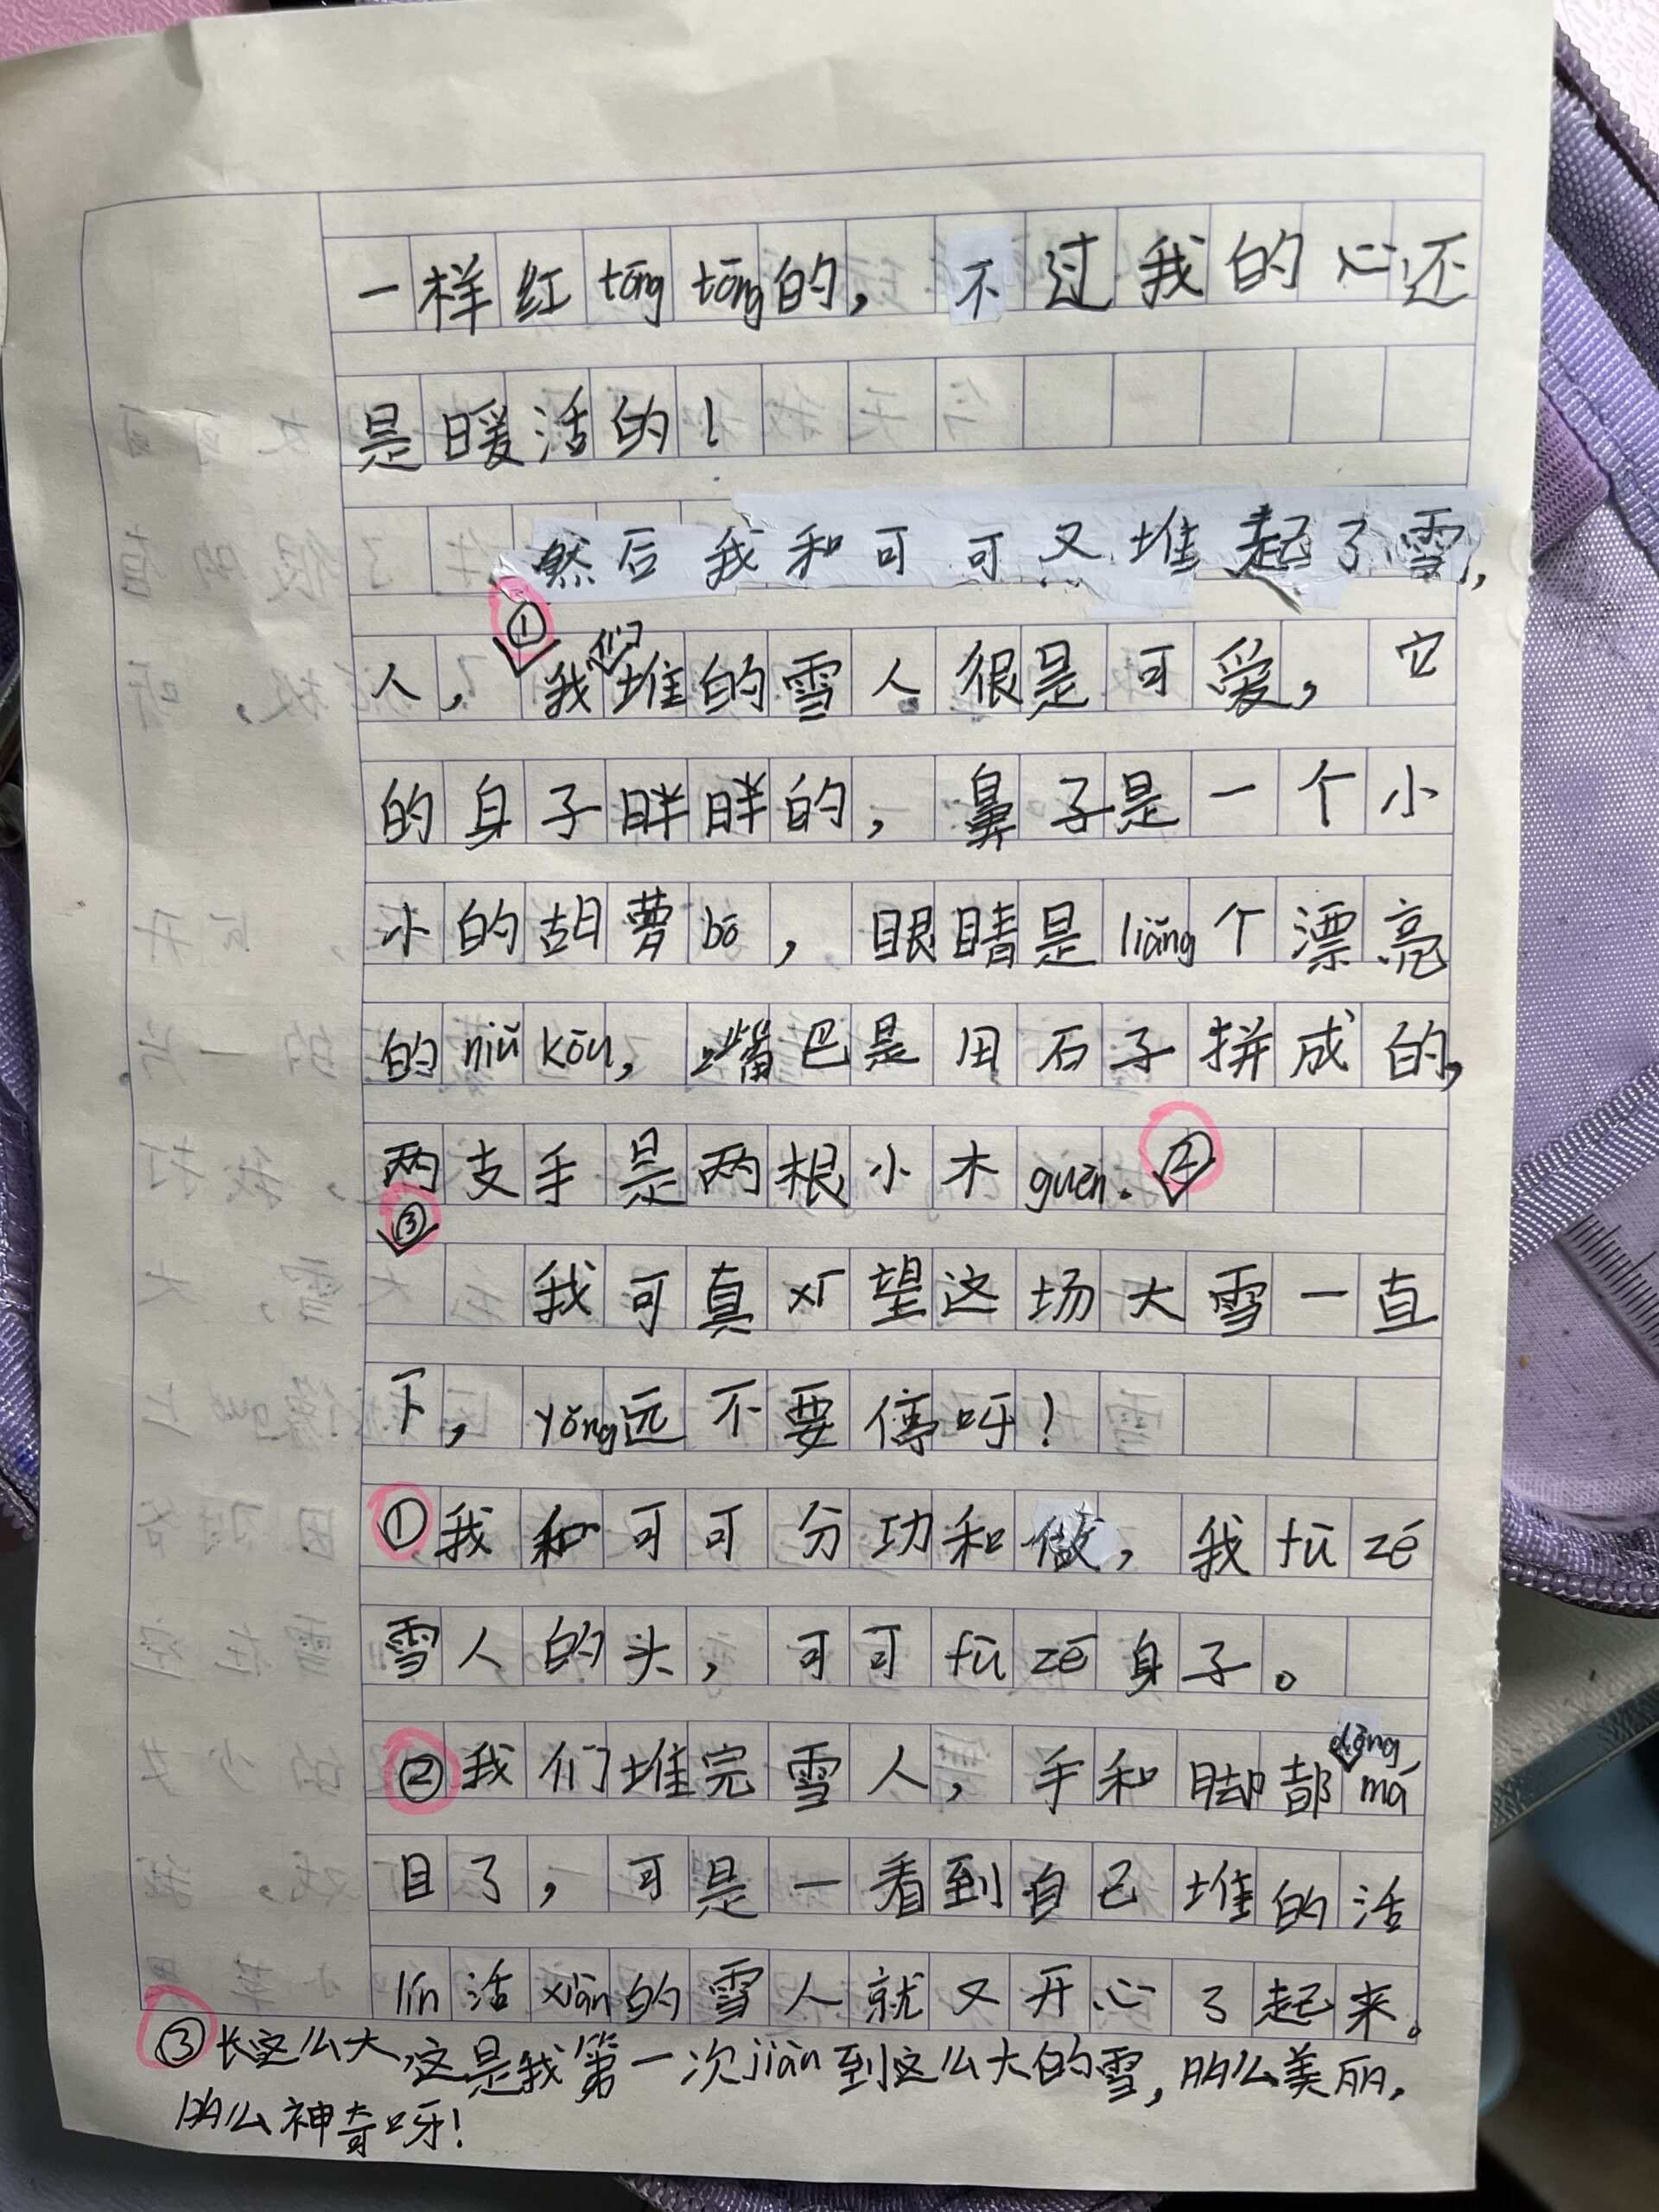 一样红tōng tōng的，不过我的心还
是暖活的！
然后我和可可又堆起了雪，
① 们
人，我堆的雪人很是可爱，它
的身子胖胖的，鼻子是一个小
小的胡萝bō，眼睛是liǎng个漂亮
的niǔ kōu，嘴巴是用石子拼成的，
两支手是两根小木guēn.②
③
我可真 望这场大雪一直
下，yǒng远不要停呀！
①我和可可分功和做，我fū zé
雪人的头，可可fū zé身子。
dōng
②我们堆完雪人，手和脚都má
目了，可是一看到自己堆的活
lín活xiàn的雪人就又开心了起来。
③长这么大，这是我第一次jiàn到这么大的雪，那么美丽，
那么神奇呀！